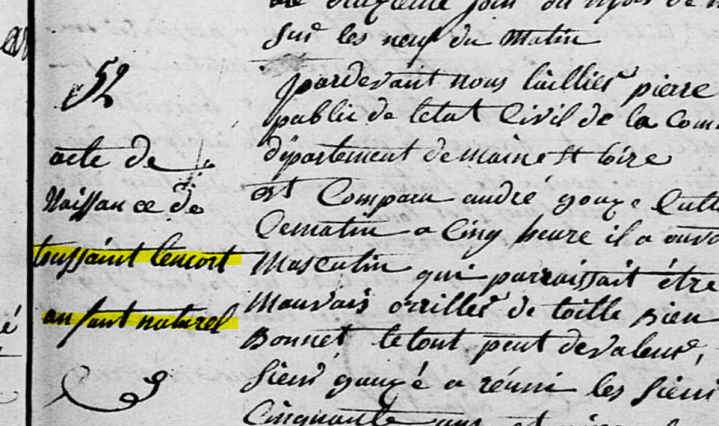 sur les neuf du matin
52
acte de
Naissance de
toussaint lemort
enfant naturel
pardevant nous Pierre
public de letat Civil de la Com
département de maine et loire
est Comparu andré gougé Cult
Cematin a Cinq heure il a
Masculin qui parraissait être
Mauvais orrilles de toille
Bonnet letout peut devaleur,
sieur gougé a réuni les sieur
Cinquante ans et